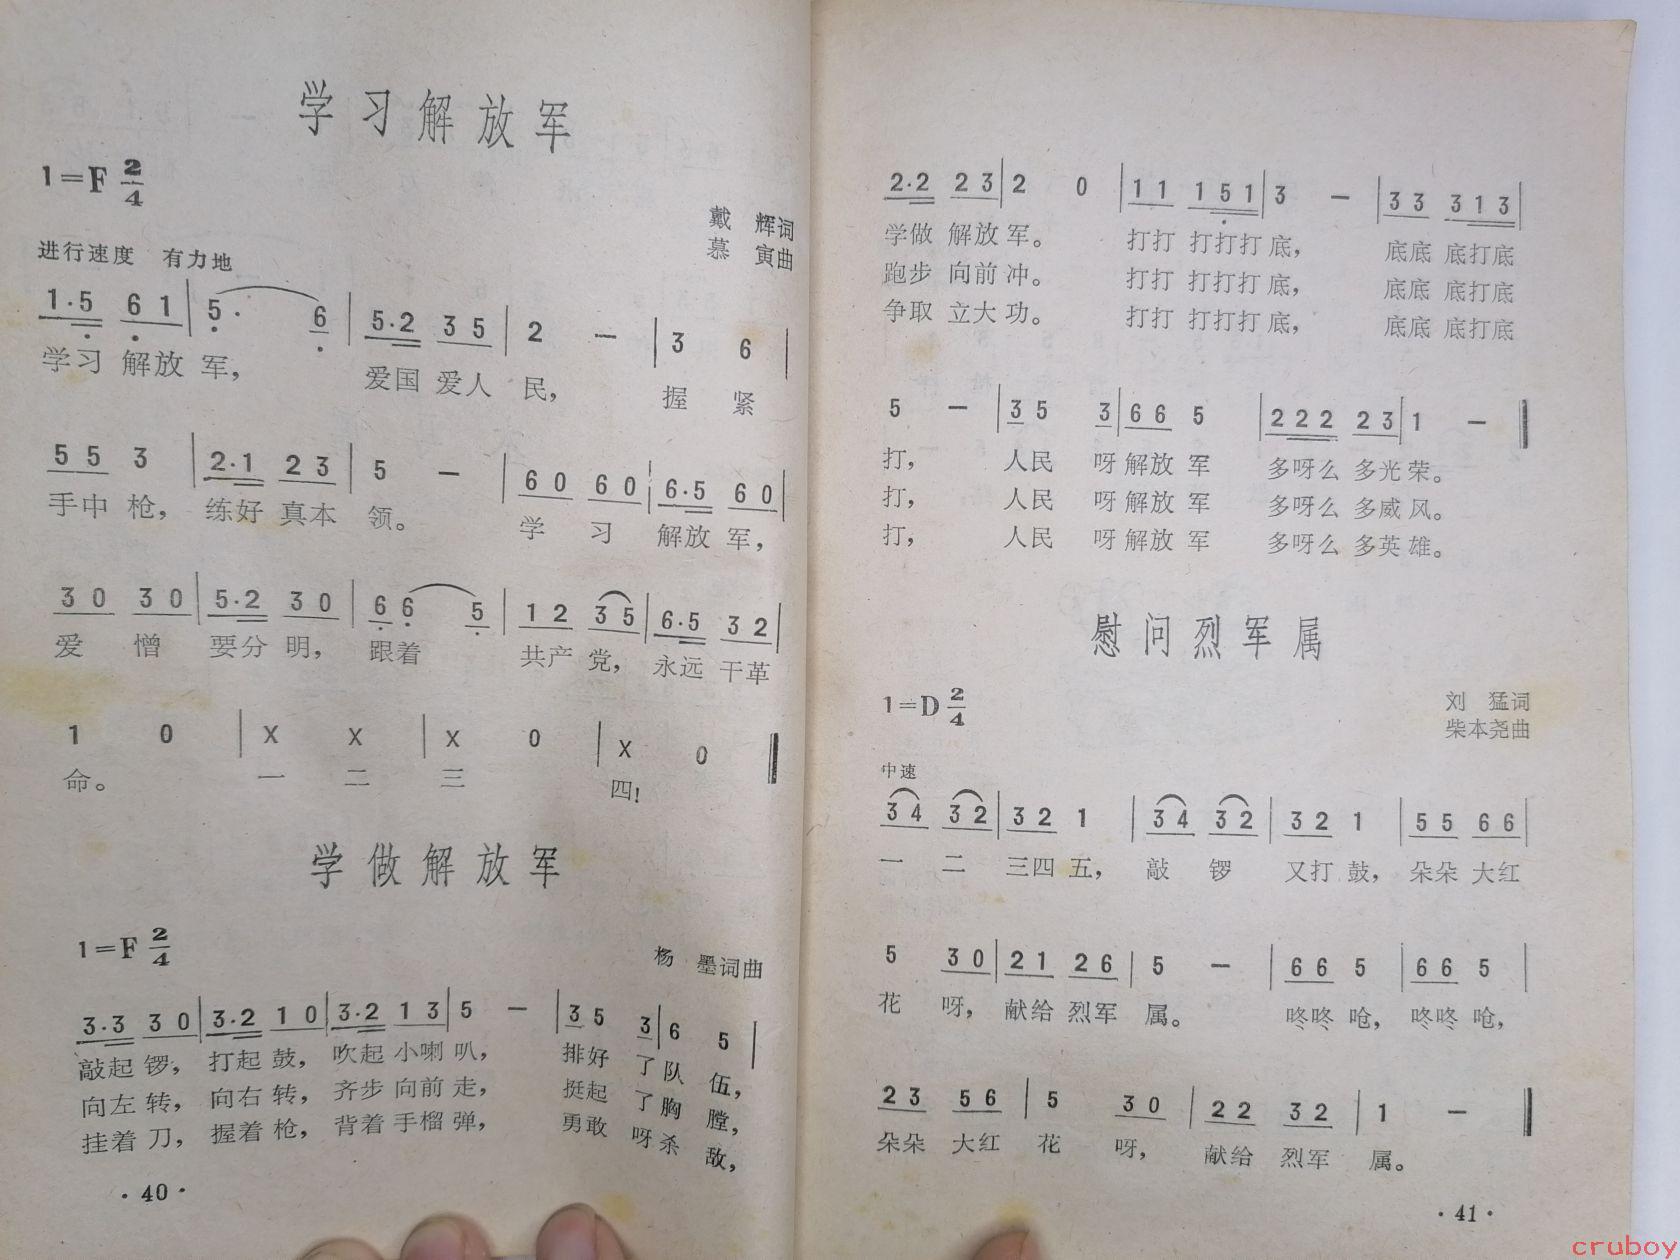 学习解放军
1=F 2/4
戴 辉词
慕 寅曲
进行速度 有力地
1·5 6 1 | 5· 6 | 5·2 3 5 | 2 — | 3 6 |
学习 解放 军， 爱国 爱人 民， 握 紧
5 5 3 | 2·1 2 3 | 5 — | 6 0 6 0 | 6·5 6 0 |
手中 枪， 练好 真本 领。 学 习 解放 军，
3 0 3 0 | 5·2 3 0 | 6 6 5 | 1 2 3 5 | 6·5 3 2 |
爱 憎 要分 明， 跟着 共产 党， 永远 干革
1 0 | X X | X 0 | X 0 ‖
命。 一 二 三 四！
学做解放军
1=F 2/4
杨 墨词曲
3·3 3 0 | 3·2 1 0 | 3·2 1 3 | 5 — | 3 5 3 | 6 5 |
敲起 锣， 打起 鼓， 吹起 小喇 叭， 排好 了队 伍，
向左 转， 向右 转， 齐步 向前 走， 挺起 了胸 膛，
挂着 刀， 握着 枪， 背着 手榴 弹， 勇敢 呀杀 敌，
·40·
2·2 2 3 | 2 0 | 1 1 1 5 1 | 3 — | 3 3 3 1 3 |
学做 解放 军。 打打 打打打 底， 底底 底打底
跑步 向前 冲。 打打 打打打 底， 底底 底打底
争取 立大 功。 打打 打打打 底， 底底 底打底
5 — | 3 5 3 | 6 6 5 | 2 2 2 2 3 | 1 — ‖
打， 人民 呀 解放 军 多呀么 多光 荣。
打， 人民 呀 解放 军 多呀么 多威 风。
打， 人民 呀 解放 军 多呀么 多英 雄。
慰问烈军属
1=D 2/4
刘 猛词
柴本尧曲
中速
3 4 3 2 | 3 2 1 | 3 4 3 2 | 3 2 1 | 5 5 6 6 |
一 二 三四 五， 敲 锣 又打 鼓， 朵朵 大红
5 3 0 | 2 1 2 6 | 5 — | 6 6 5 | 6 6 5 |
花 呀， 献给 烈军 属。 咚咚 呛， 咚咚 呛，
2 3 5 6 | 5 3 0 | 2 2 3 2 | 1 — ‖
朵朵 大红 花 呀， 献给 烈军 属。
·41·
cruboy